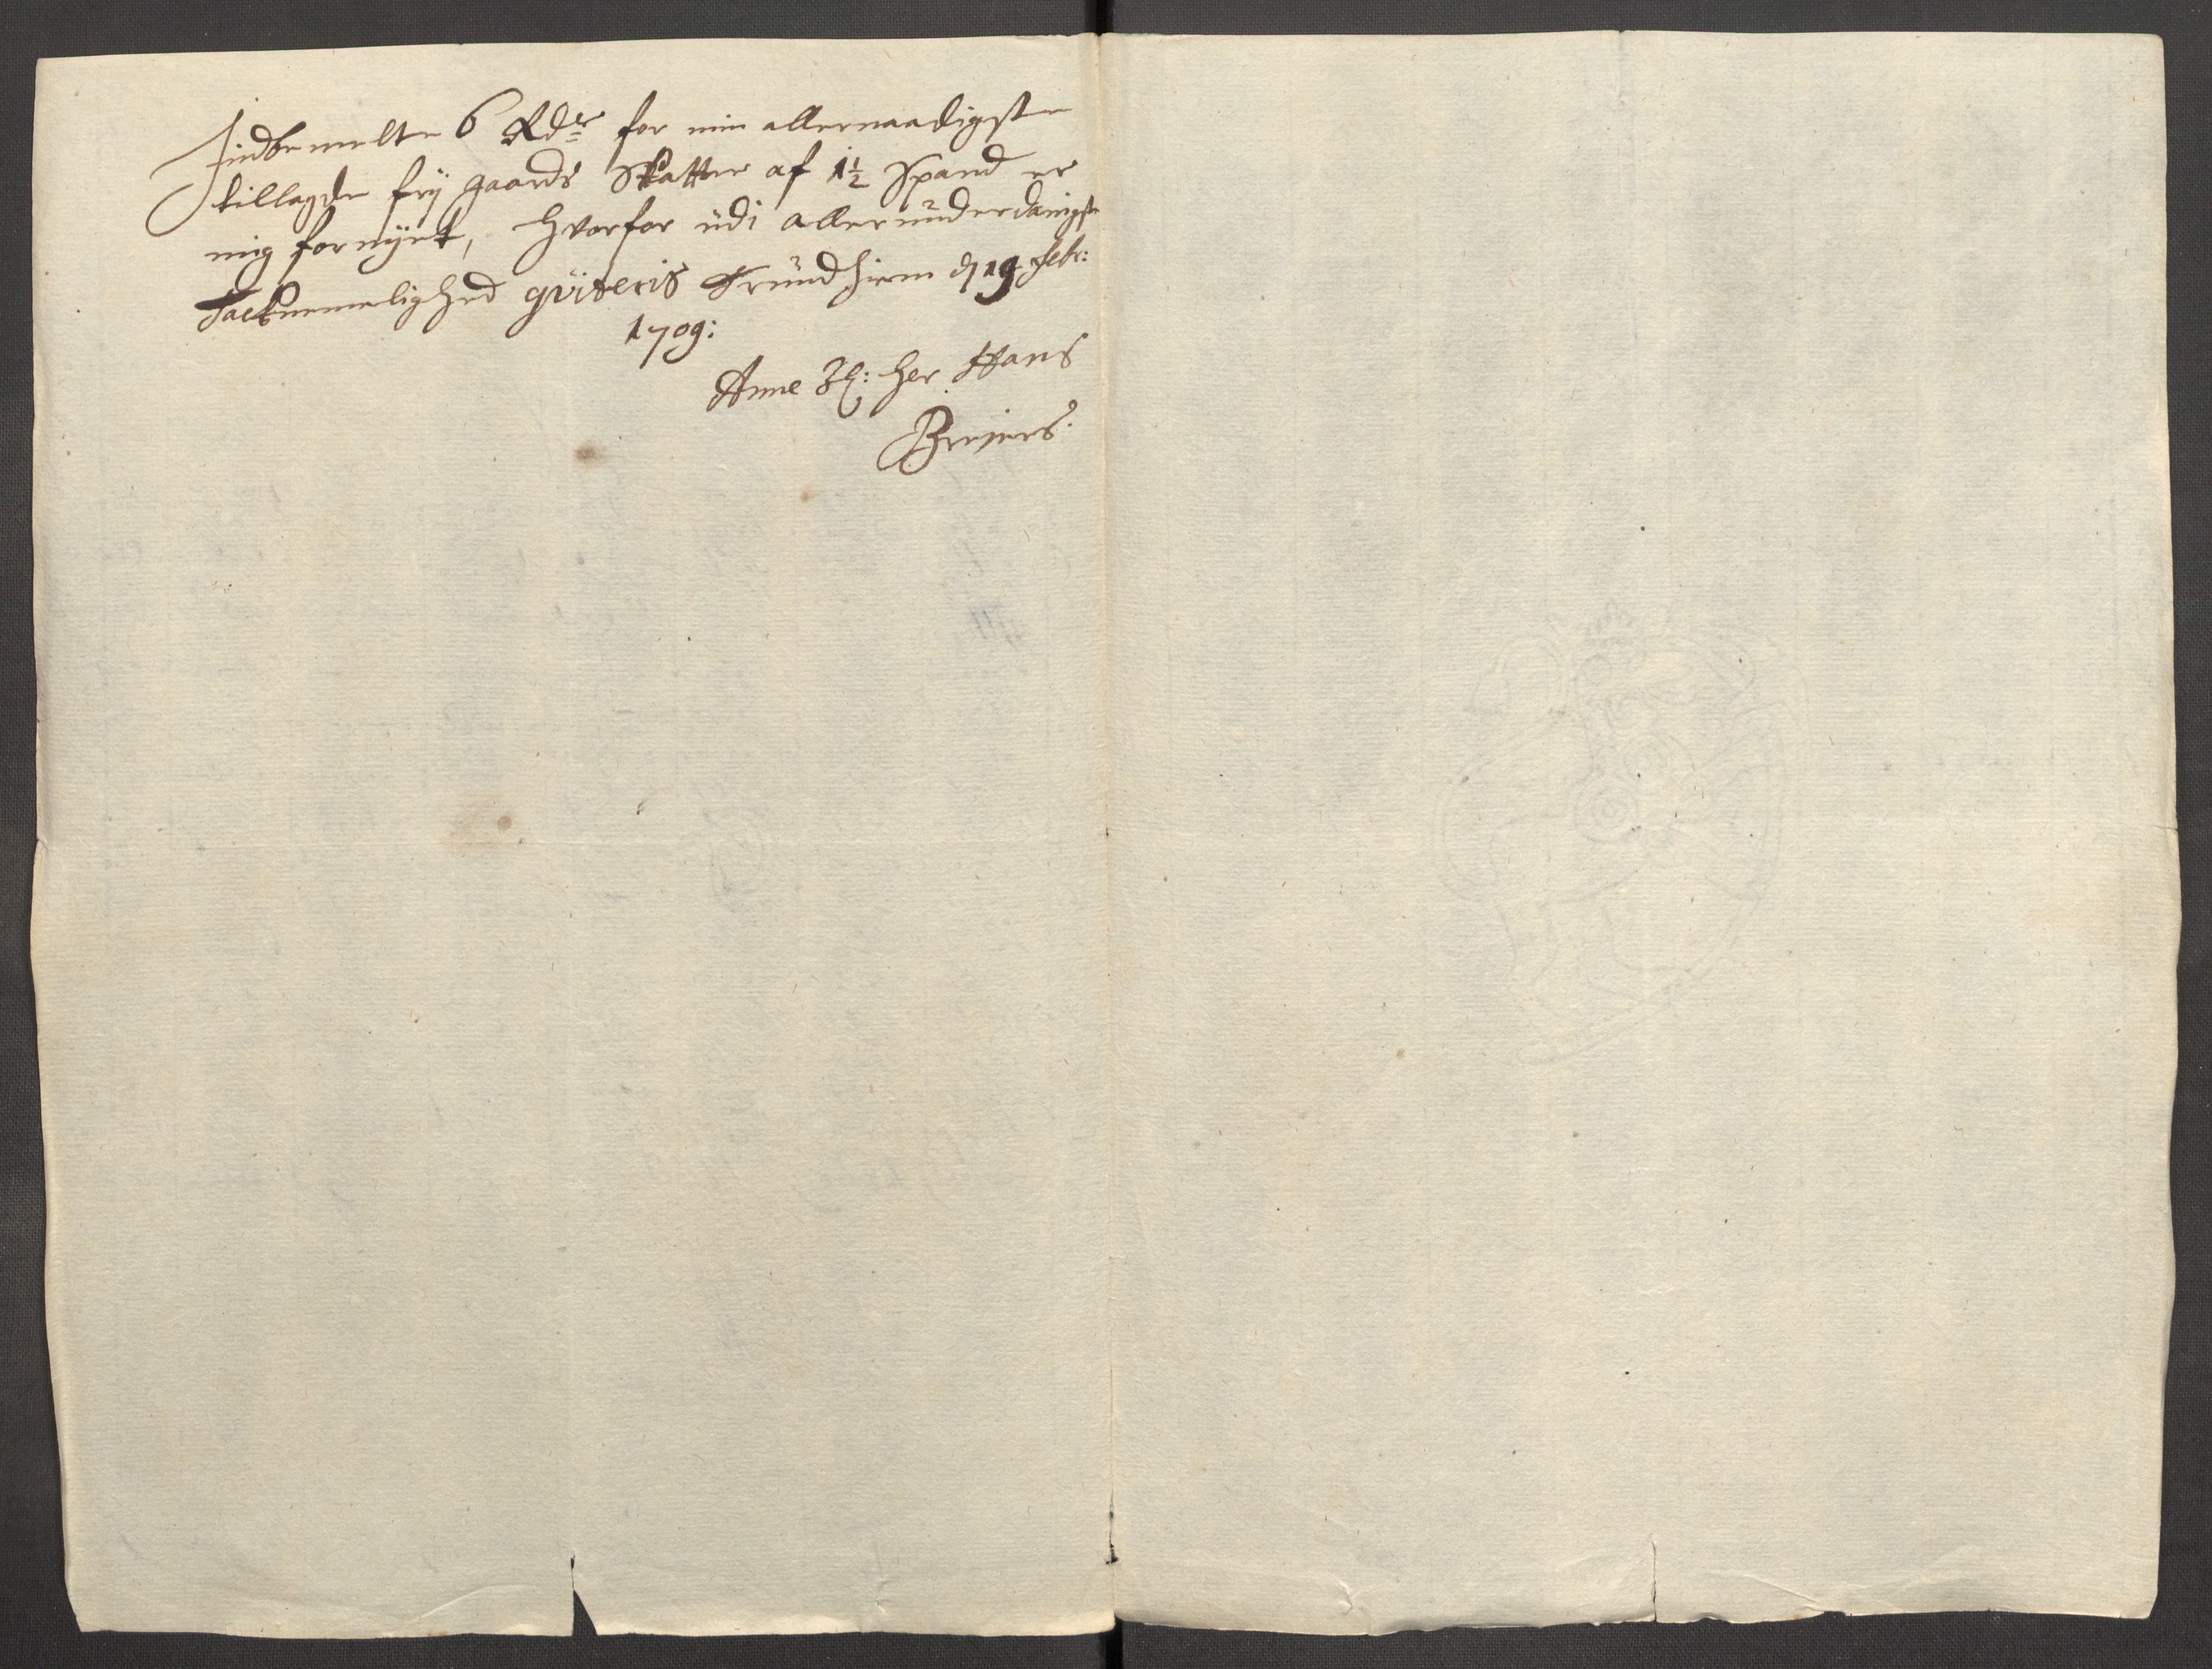 Indbemelte 6 Rdr for min allernaadigste
tillagde frÿ gaards Skatter af 1½ Spand er
mig fornÿet, hvorfor üdi allerunderdanigst
Tacknemelighed qviteris Trundhiem d 19 Febr:
1709:
Anne Sl: Her Hans
Brejers.